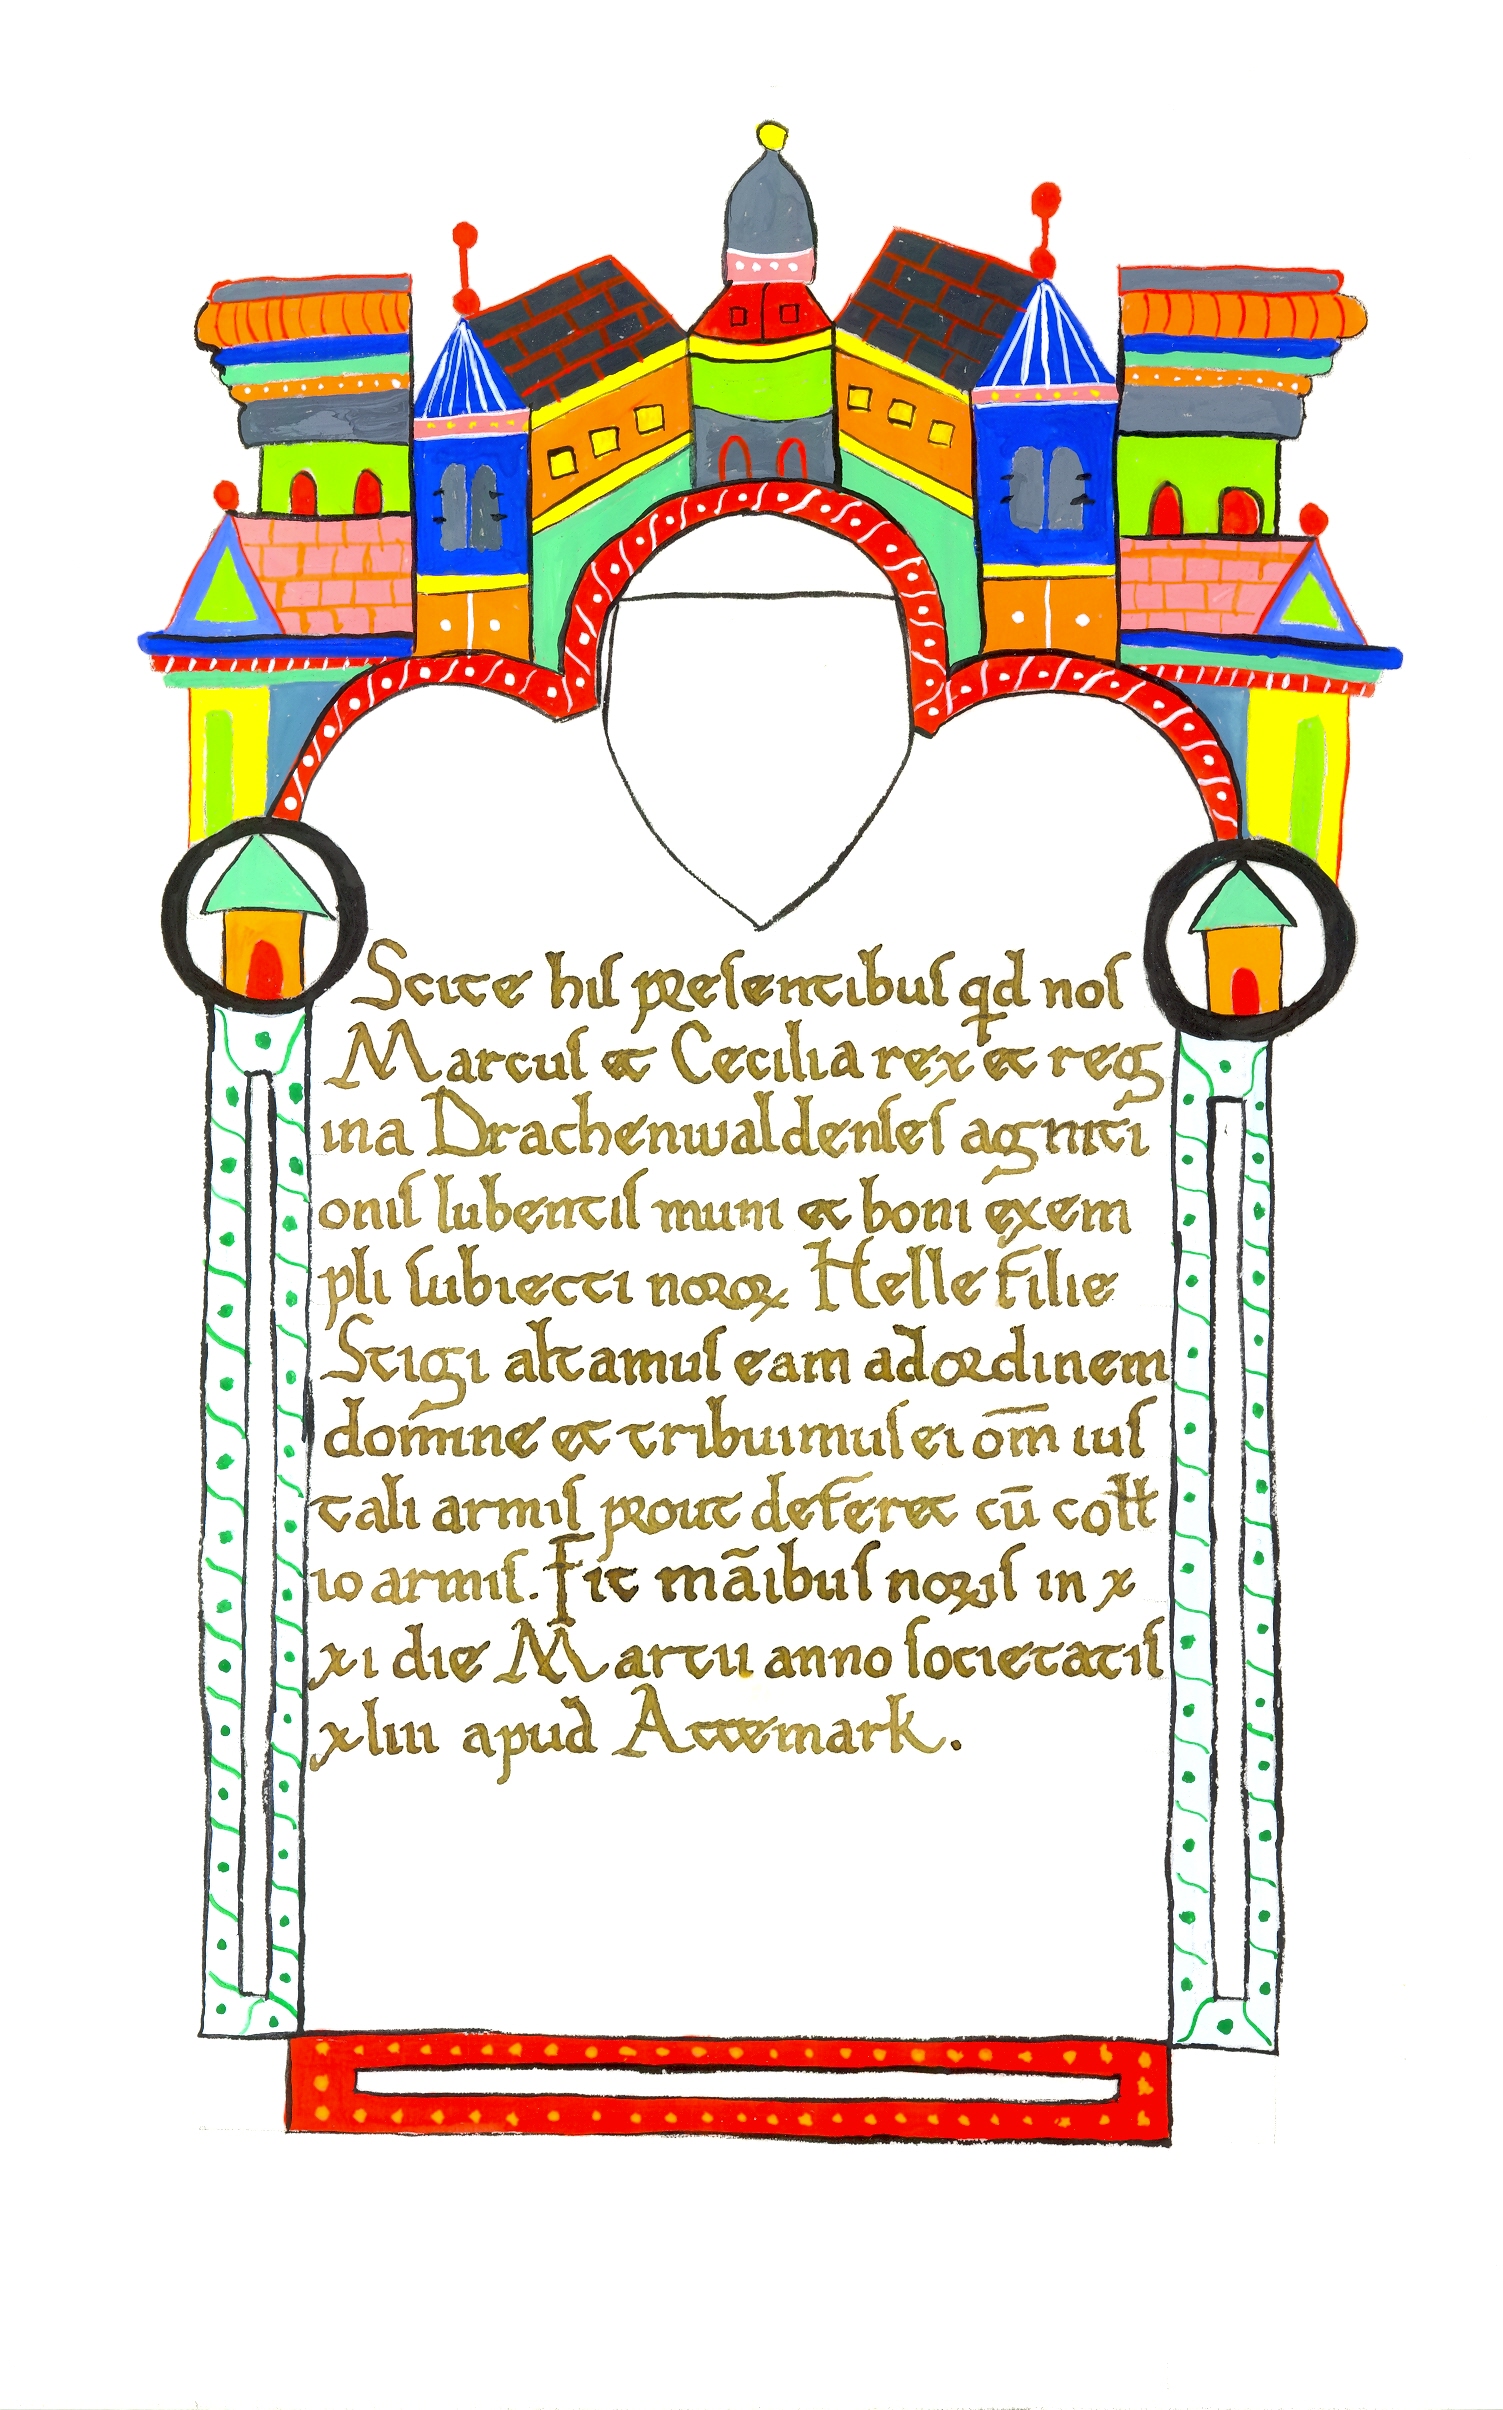 Scite hiſ preſentibuſ qd noſ
Marcuſ et Cecilia rex et reg
ina Drachenwaldenſeſ agniti
oniſ lubentiſ muni et boni exem
pli ſubiecti noꝛoꝝ Helle filie
Stigi altamuſ eam ad oꝛdinem
domīne et tribuimuſ ei om̄ iuſ
tali armiſ prout deferet cū cołł
io armiſ. Fit māibuſ noꝝiſ in x
xi die Martii anno ſocietatiſ
xliii apud Attemark.